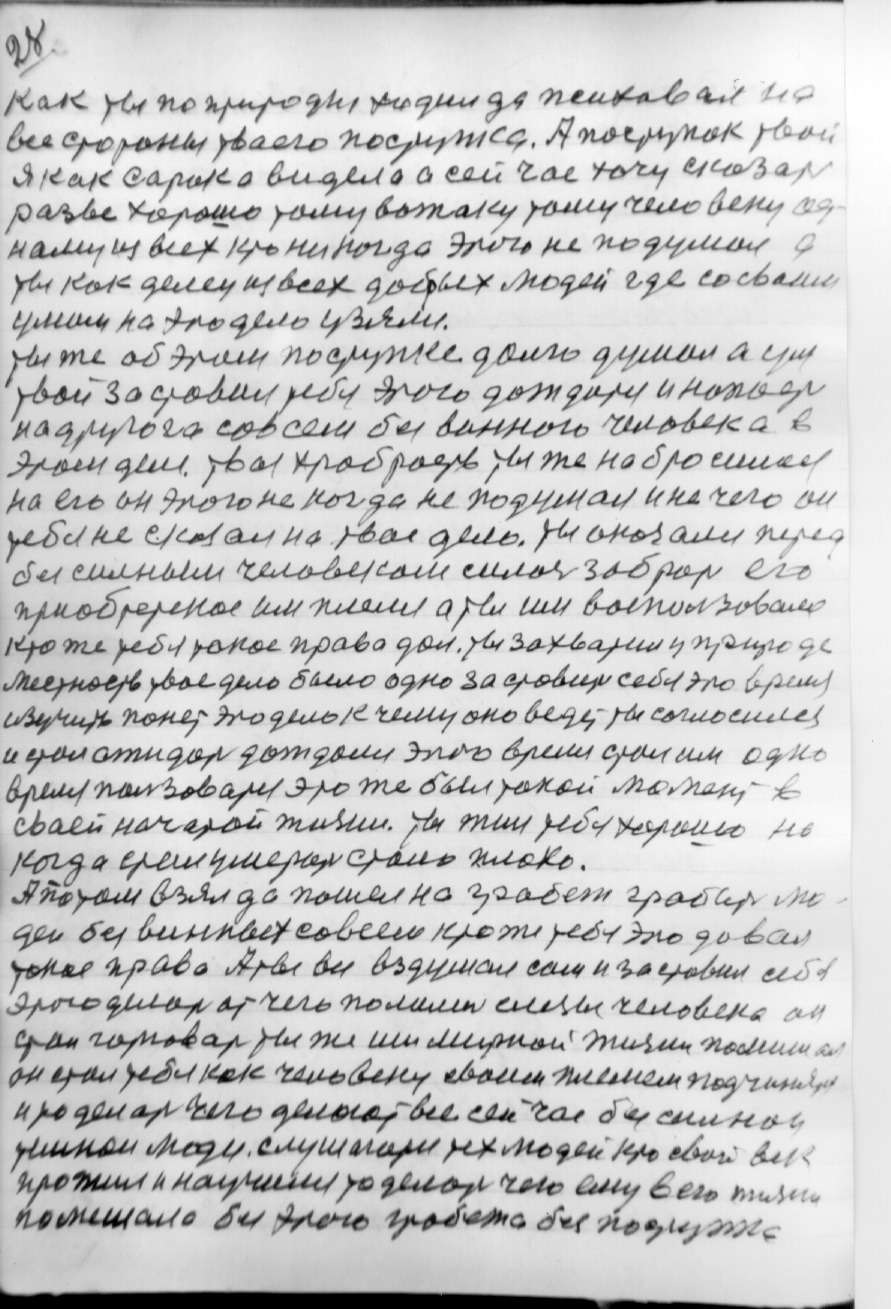 28.
как ты по природы ходил да психовал на
все стороны тваего поступка. А поступок твой
я как сарока видела а сей час хочу сказать
разве хорошо тому вожаку тому человеку од-
наму из всех кто ни когда этого не подумал а
ты как делец из всех добрых людей где со сваим
умом на это дело узяли.
ты же об этом поступке долго думал а ум
твой заставил тебя этого дождатя и напасть
на другога совсем без винного человека в
этом деле. твоя храбрость ты же набросился
на его он этого не когда не подумал и не чего он
тебя не сказал на твое дело. ты оказался перед
без сильным человеком силой забрал его
приобретеное им племя а ты им воспользовался
кто же тебя такое права дал. ты захватил у природе
местность твое дело было одно заставить себя это время
изучить понять это дело к чему оно ведет ты согласился
и стал ожидать дождался этого время стал им одно
время пользоватя это же был такой момент в
сваей начатой жизни. ты жил тебя хорошо но
когда стал умерать стало плохо.
А потом взял да пошел на грабеж грабить лю-
дей без винных совсем кто же тебя это давал
такое права А ты все вздумал сам и заставил себя
этого делать от чего полились слезы человека он
стал горевать ты же им мирной жизни помешал
он стал тебя как человеку сваим племем подчинятя
и то делать чего делают все сей час без сильной
темной люди. слушатя тех людей кто свой век
прожил и научился то делать чего ему в его жизни
помешало без этого грабежа без